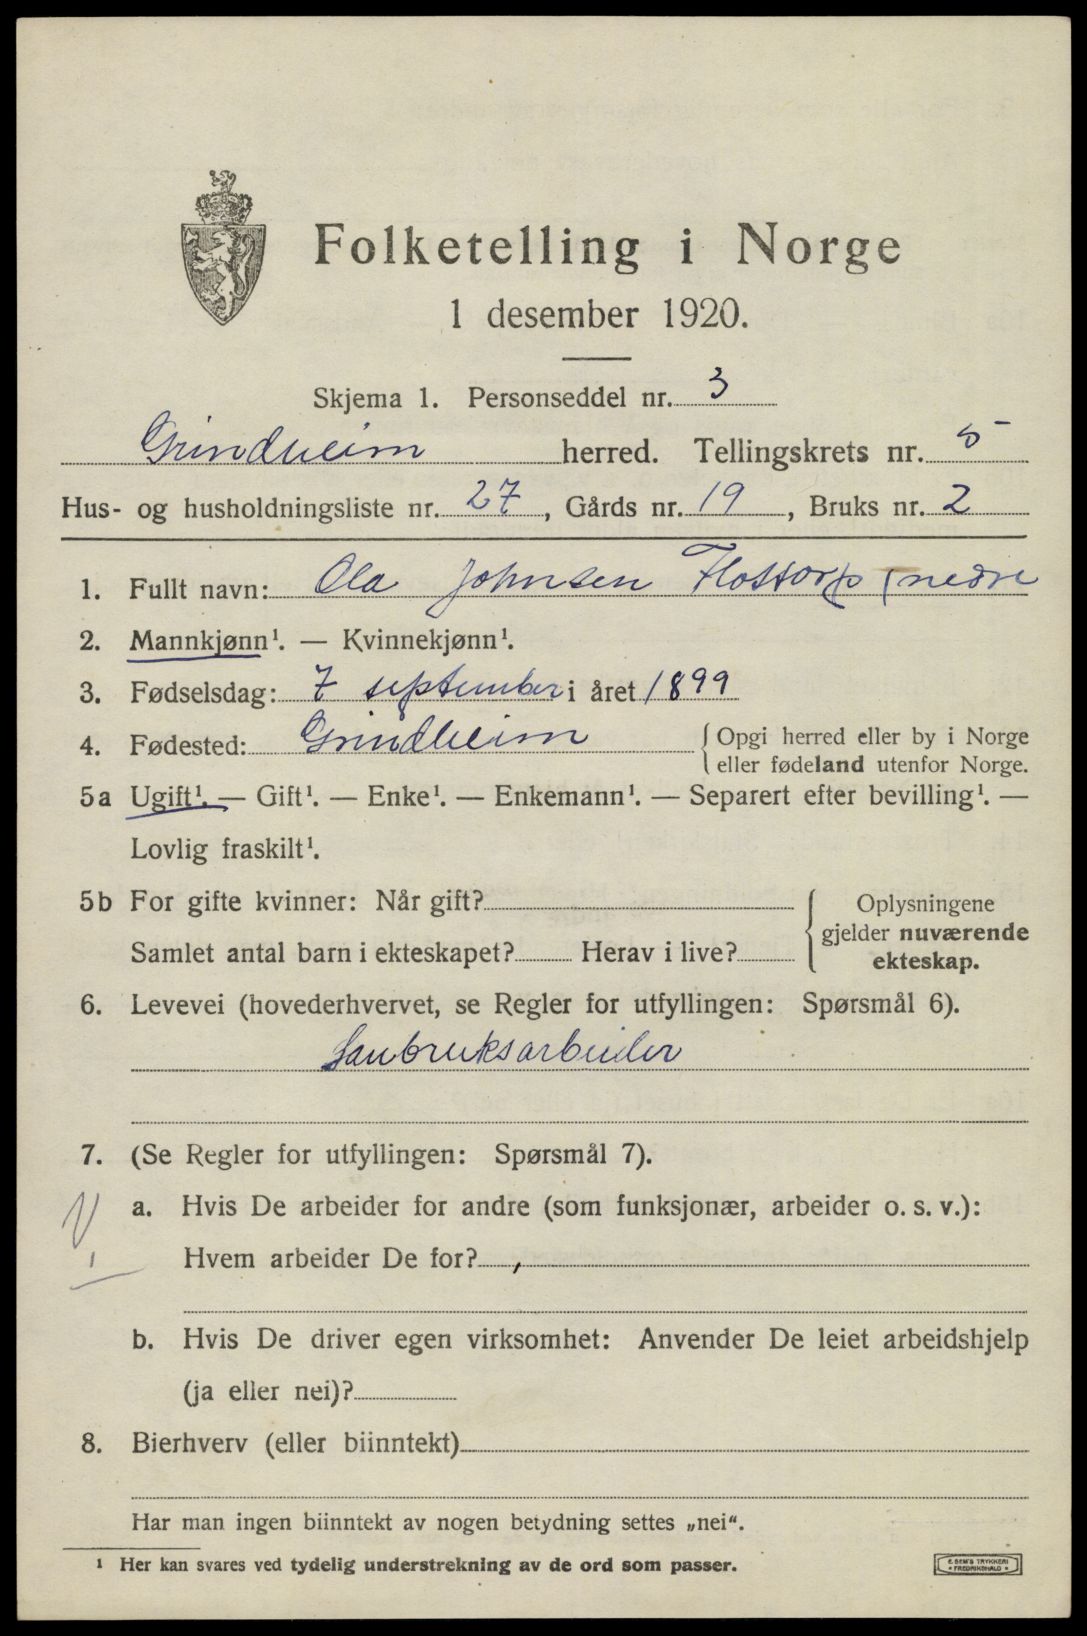 Folketelling i Norge
1 desember 1920.
Skjema 1. Personseddel nr. 3
Grindheim herred. Tellingskrets nr. 5
Hus- og husholdningsliste nr. 27, Gårds nr. 19, Bruks nr. 2
1. Fullt navn: Ola Johnsen Flottorp (nedre
2. Mannkjønn¹. — Kvinnekjønn¹.
3. Fødselsdag: 7 september i året 1899
4. Fødested: Grindheim { Opgi herred eller by i Norge
eller fødeland utenfor Norge.
5a Ugift¹. — Gift¹. — Enke¹. — Enkemann¹. — Separert efter bevilling¹. —
Lovlig fraskilt¹.
5b For gifte kvinner: Når gift? { Oplysningene
gjelder nuværende
Samlet antal barn i ekteskapet? Herav i live?
ekteskap.
6. Levevei (hovederhvervet, se Regler for utfyllingen: Spørsmål 6).
Saubruksarbeider
7. (Se Regler for utfyllingen: Spørsmål 7).
a. Hvis De arbeider for andre (som funksjonær, arbeider o. s. v.):
Hvem arbeider De for? ,
b. Hvis De driver egen virksomhet: Anvender De leiet arbeidshjelp
(ja eller nei)?
8. Bierhverv (eller biinntekt)
Har man ingen biinntekt av nogen betydning settes „nei“.
¹ Her kan svares ved tydelig understrekning av de ord som passer.
E. SEM'S TRYKKERI
• FREDRIKSHALD •